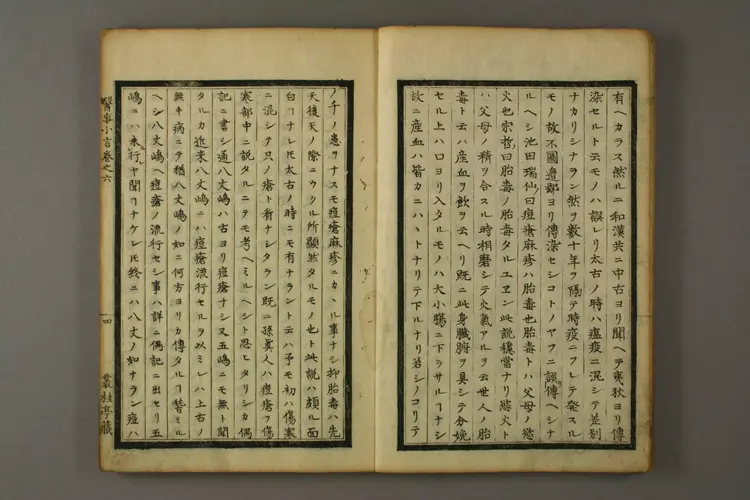 有ヘカラス然ルニ和漢共ニ中古ヨリ聞ヘテ夷狄ヨリ傳
染セルト云モノハ誤レリ太古ノ時ハ瘟疫ニ混シテ差別
ナカリシナラン然ヲ數十年ヲ隔テ時疫ニフレテ発スル
モノ故不圖邊鄙ヨリ傳染セシコトノヤフニ誤傳ヘシナ
ルヘシ池田瑞仙曰痘瘡麻疹ハ胎毒也胎毒トハ父母ノ慾
火也宗哲曰胎毒ノ胎毒タルユヱン此説穏當ナリ慾火ト
ハ父母ノ精ヲ合スル時相磨シテ火氣アルヲ云世人ノ胎
毒ト云ハ産血ヲ飲ヲ云ヘリ既ニ此身臓腑ヲ具シテ分娩
セル上ハ口ヨリ入タルモノハ大小腸ニ下ラサルヿナシ
故ニ産血ハ皆カニハヽトナリテ下ルナリ若シノコリテ
ノ千ノ患ヲナスモ痘瘡麻疹ニカヽル事ナシ抑胎毒ハ先
天後天ノ際ニウクル所顯然タルモノ也ト此説ハ頗ル面
白ヿナレ𪜈太古ノ時ニモ有ナラント云ハ予モ初ハ傷寒
ニ混シテ只ノ瘡ト看ナシタラン既ニ孫真人ハ痘瘡ヲ傷
寒部中ニ説タルニテモ考ヘミルヘシト思ヒタリシカ偶
記ニ書シ通八丈嶋ハ古ヨリ痘瘡ナシ又五嶋ニモ無ト聞
タルカ近来八丈嶋ニハ痘瘡流行セルヲ以ミレハ上古ノ
無キ病ニテ猶八丈嶋ノ如ニ何方ヨリカ傳タルヿ替ミル
ヘシ八丈嶋ヘ痘瘡ノ流行セシ事ハ詳ニ偶記ニ出セリ五
嶋ニハ未行ヤ聞ヿナケレ𪜈終ニハ八丈ノ如ナラン痘ハ
醫事小言巻之六
四
叢桂亭藏